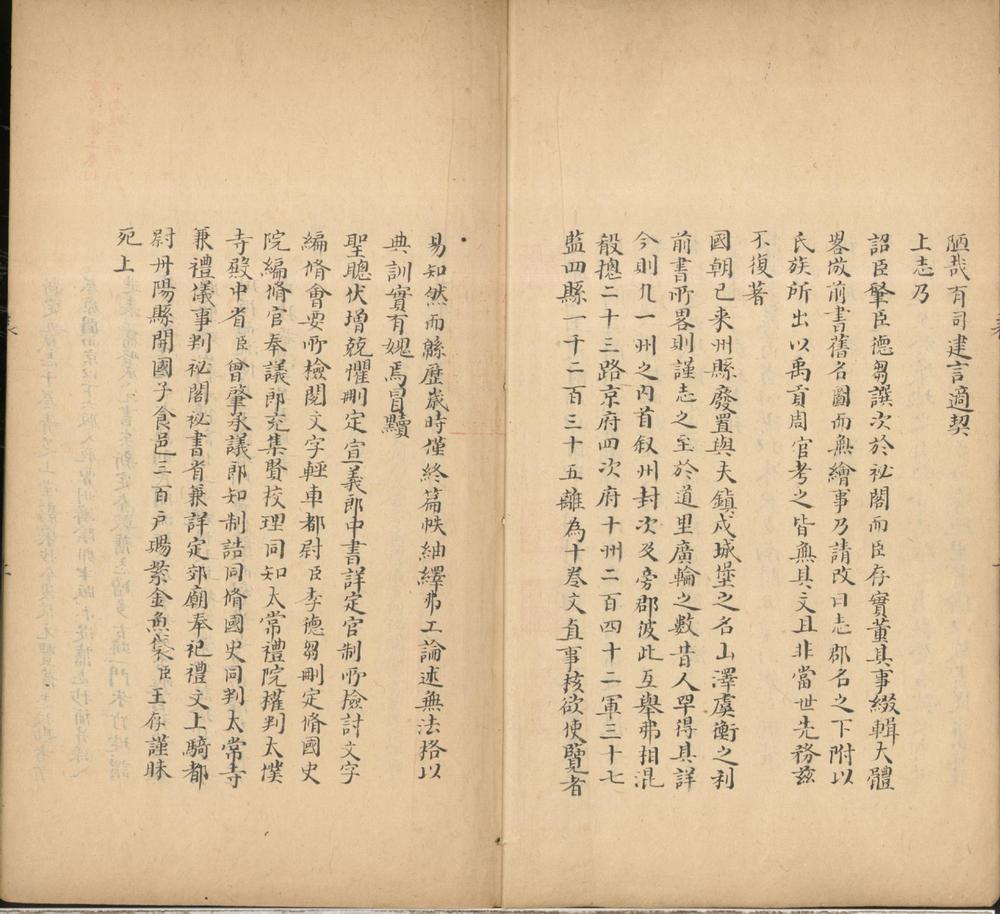 陋哉有司建言適契
上志乃
詔臣肇臣德芻譔次於祕閣而臣存實董其事綴輯大體
畧倣前書舊名圖而無繪事乃請改曰志郡名之下附以
氏族所出以禹貢周官考之皆無其文且非當世先務茲
不復著
國朝已來州縣廢置與夫鎮戍城堡之名山澤虞衡之利
前書所畧則謹志之至於道里廣輪之數昔人罕得其詳
今則凡一州之內首叙州封次及旁郡彼此互舉弗相混
殽摠二十三路京府四次府十州二百四十二軍三十七
監四縣一千二百三十五離為十卷文直事核欲使覽者
易知然而緜歷歲時僅終篇帙紬繹弗工論述無法格以
典訓實有媿焉冒黷
聖聰伏增兢懼刪定宣義郎中書詳定官制所檢討文字
編脩會要所檢閱文字輕車都尉臣李德芻刪定脩國史
院編脩官奉議郎充集賢校理同知太常禮院權判太僕
寺殿中省臣曾肇承議郎知制誥同脩國史同判太常寺
兼禮儀事判祕閣祕書省兼詳定郊廟奉祀禮文上騎都
尉丹陽縣開國子食邑三百戶賜紫金魚袋臣王存謹昧
死上